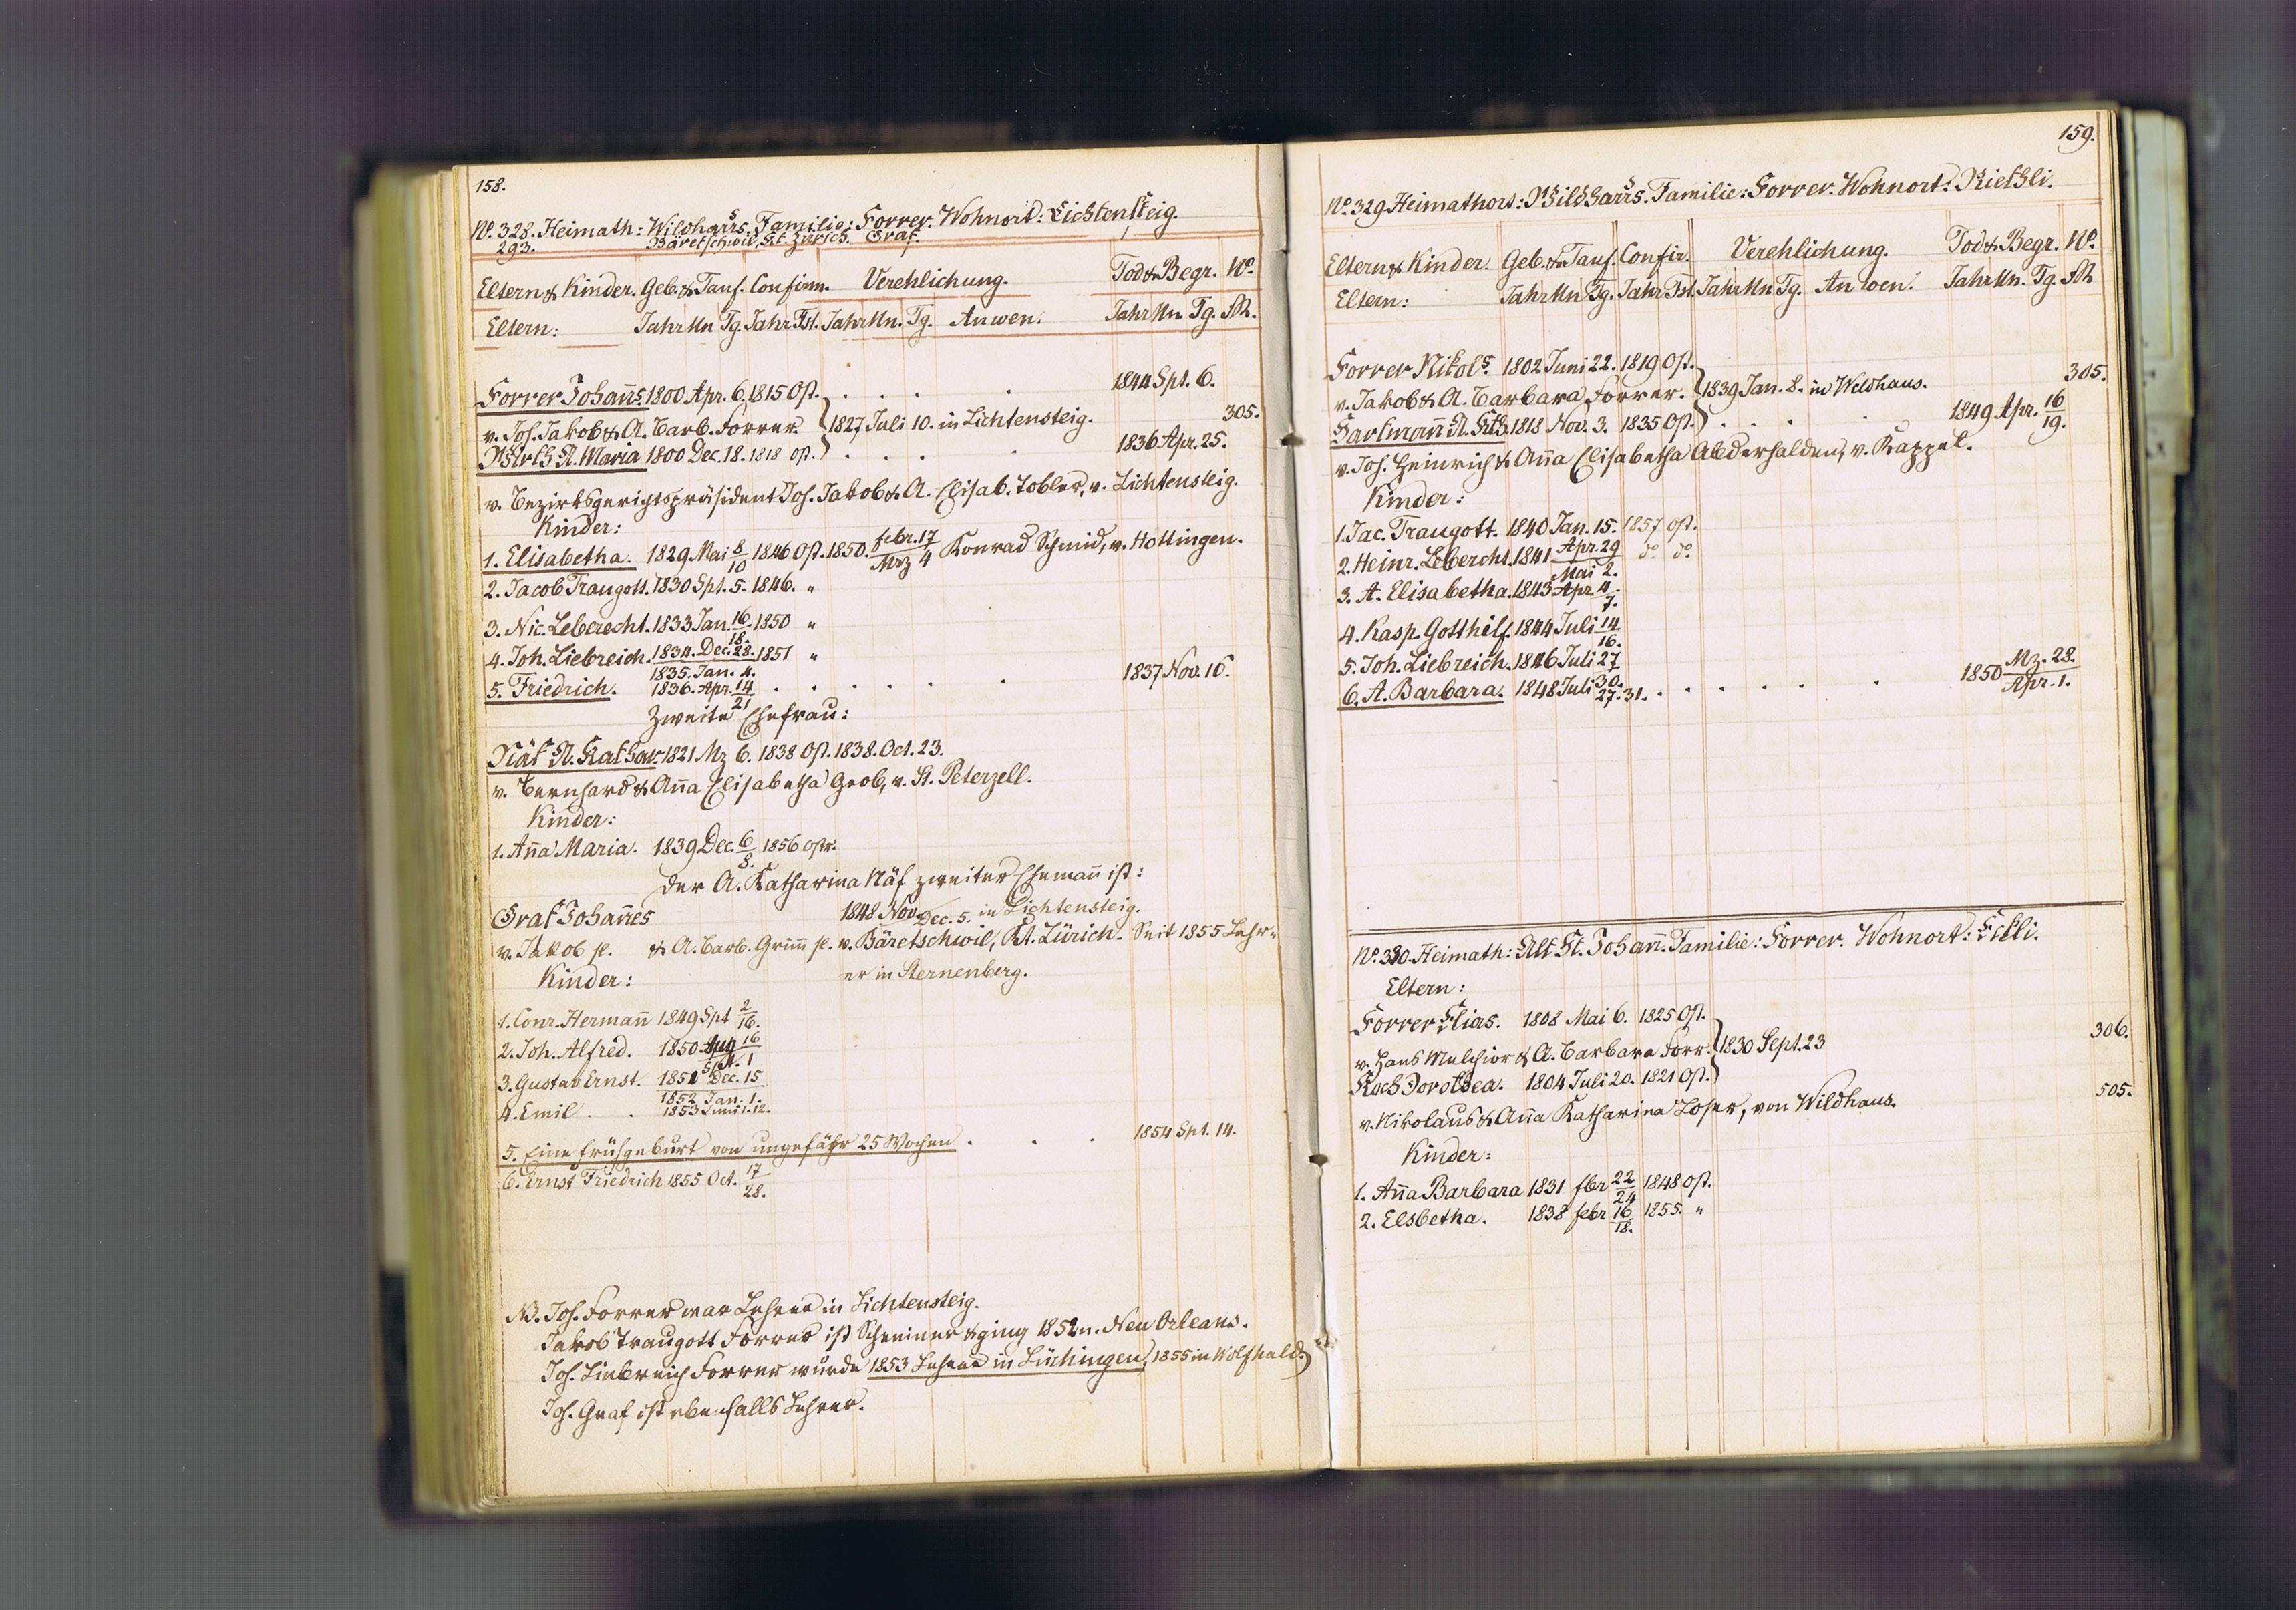 158.
No. 328. Heimath: Wildhaus. Familie: Forrer. Wohnort: Lichtensteig.
293. Bäretschwil, Kt. Zürich. Graf.
Eltern & Kinder. Geb. & Tauf. Confirm. Verehlichung. Tod & Begr. No.
Eltern: Jahr Mn Tg. Jahr Fst. Jahr Mn. Tg. Anwen. Jahr Mn Tg. M.
Forrer Johañs. 1800 Apr. 6. 1815 Ost. . . . . 1844 Spt. 6.
v. Joh. Jakob & A. Barb. Forrer. } 1827 Juli 10. in Lichtensteig. 305.
Wirth A. Maria 1800 Dec. 18. 1818 Ost. . . . . 1836 Apr. 25.
v. Bezirksgerigtspräsident Joh. Jakob & A. Elisab. Tobler, v. Lichtensteig.
Kinder:
1. Elisabetha. 1829 Mai 8/10 1846 Ost. 1850. febr. 17/Mrz 4 Konrad Schmid, v. Hottingen.
2. Jacob Traugott. 1830 Spt. 5. 1846. "
3. Nic. Leberecht. 1833 Jan. 16/18. 1850 "
4. Joh. Liebreich. 1834. Dec. 28./1835. Jan. 4. 1851 "
5. Friedrich. 1836. Apr. 14/21 . . . . . . 1837 Nov. 16.
Zweite Ehefrau:
Näf A. Kathar. 1821 Mz 6. 1838 Ost. 1838. Oct. 23.
v. Bernhard & Aña Elisabetha Grob, v. St. Peterzell.
Kinder:
1. Aña Maria. 1839 Dec. 6/8. 1856 Ostr.
Der A. Katharina Näf zweiter Ehemañ ist:
Graf Johañes 1848 Nov./Dec. 5. in Lichtensteig.
v. Jakob sel. & A. Barb. Grim̄ sel. v. Bäretschwil, Kt. Zürich. Seit 1855 Lehr-
Kinder: er in Sternenberg.
1. Conr. Hermañ 1849 Spt 2/16.
2. Joh. Alfred. 1850 Aug 16/Spt. 1
3. Gustav Ernst. 1851 Dec. 15/1852 Jan. 1.
4. Emil . . 1853 Juni 1. 12.
5. Eine frühgeburt von ungefähr 25 Wochen . . . 1854 Spt. 14.
6. Ernst Friedrich 1855 Oct. 17/28.
NB. Joh. Forrer war Lehrer in Lichtensteig.
Jakob Traugott Forrer ist Schreiner & ging 1852 n. New Orleans.
Joh. Liebreich Forrer wurde 1853 Lehrer in Lüchingen, 1855 in Wolfhald.
Joh. Graf ist ebenfalls Lehrer.
159.
No. 329 Heimathort: Wildhaus. Familie: Forrer. Wohnort: Riethli.
Eltern & Kinder. Geb. & Tauf. Confir. Verehlichung. Tod & Begr. No.
Eltern: Jahr Mn Tg. Jahr Fst. Jahr Mn Tg. Anwen. Jahr Mn. Tg. M
Forrer Nikols. 1802 Juni 22. 1819 Ost.
v. Jakob & A. Barbara Forrer. } 1839 Jan. 8. in Wildhaus. 305.
Hartmañ A. Elsb. 1818 Nov. 3. 1835 Ost. . . . 1849 Apr. 16/19.
v. Joh. Heinrich & Aña Elisabetha Abderhalden, v. Kappel.
Kinder:
1. Jac. Traugott. 1840 Jan. 15. 1857 Ost.
2. Heinr. Leberecht. 1841 Apr. 29/Mai 2. do. do.
3. A. Elisabetha. 1843 Apr. 4/7.
4. Kasp. Gotthilf. 1844 Juli 14/16.
5. Joh. Liebreich. 1846 Juli 27/30.
6. A. Barbara. 1848 Juli 27. 31. . . . . . . 1850 Mz. 28./Apr. 1.
No. 330. Heimath: Alt St. Johañ. Familie: Forrer. Wohnort:
Eltern:
Forrer Elias. 1808 Mai 6. 1825 Ost.
v. Hans Melchior & A. Barbara Forr. } 1830 Sept. 23 306.
Koch Dorothea. 1804 Juli 20. 1821 Ost.
v. Nikolaus & Aña Katharina Loser, von Wildhaus. 505.
Kinder:
1. Aña Barbara 1831 fbr 22/24 1848 Ost.
2. Elsbetha. 1838 febr 16/18. 1855. "